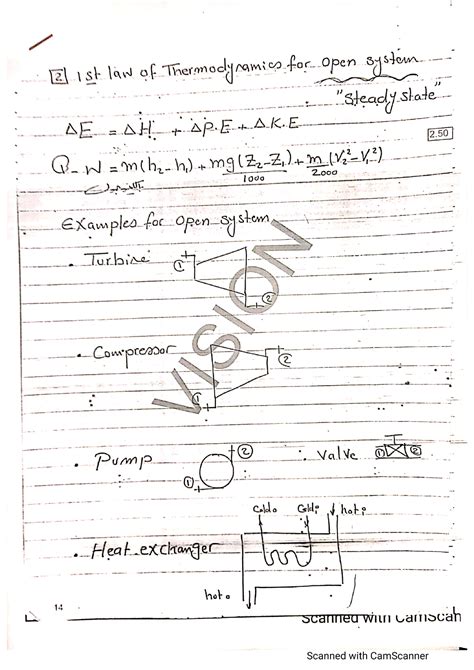 2 1st law of Thermodynamics for open system
"Steady state"
ΔE = ΔH + ΔP.E + ΔK.E
2.50
Q - W = m(h2 - h1) + mg(Z2 - Z1)/1000 + m/2000 (V2² - V1²)
Examples for open system
• Turbine ① ②
VISION
• Compressor ① ②
• Pump ① ② • valve ① ②
Cold o Cold i hot i
• Heat exchanger
hot o
14
Scanned with CamScan
Scanned with CamScanner